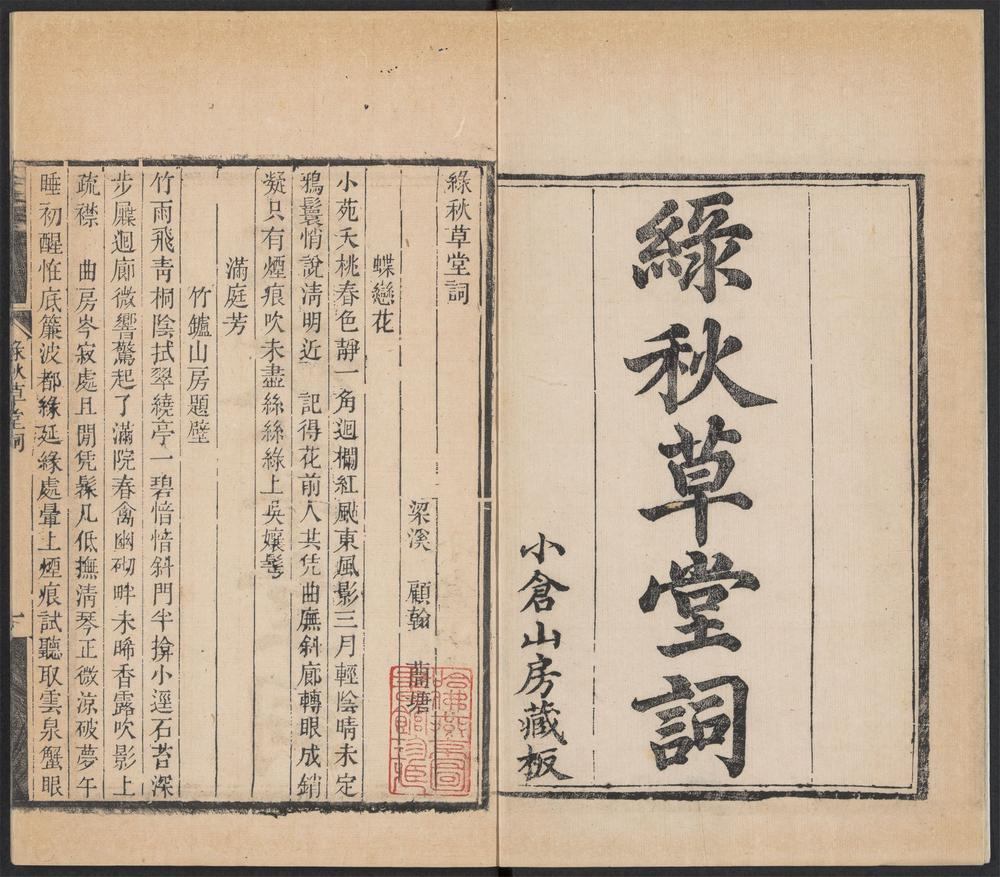 綠秋草堂詞
小倉山房藏板
綠秋草堂詞
梁溪 顧翰 蘭塘
蝶戀花
小苑夭桃春色靜一角迴欄紅颭東風影三月輕陰晴未定
鴉鬟悄說淸明近 記得花前人共凭曲廡斜廊轉眼成銷
凝只有煙痕吹未盡絲絲綠上吳孃鬢
滿庭芳
竹鑪山房題壁
竹雨飛靑桐陰拭翠繞亭一碧愔愔斜門半揜小逕石苔深
步屧迴廊微響驚起了滿院春禽幽砌畔未晞香露吹影上
疏襟 曲房岑寂處且閒凭髹几低撫淸琴正微涼破夢午
睡初醒恠底簾波都綠延緣處暈上煙痕試聽取雲泉蟹眼
綠秋草堂詞 一